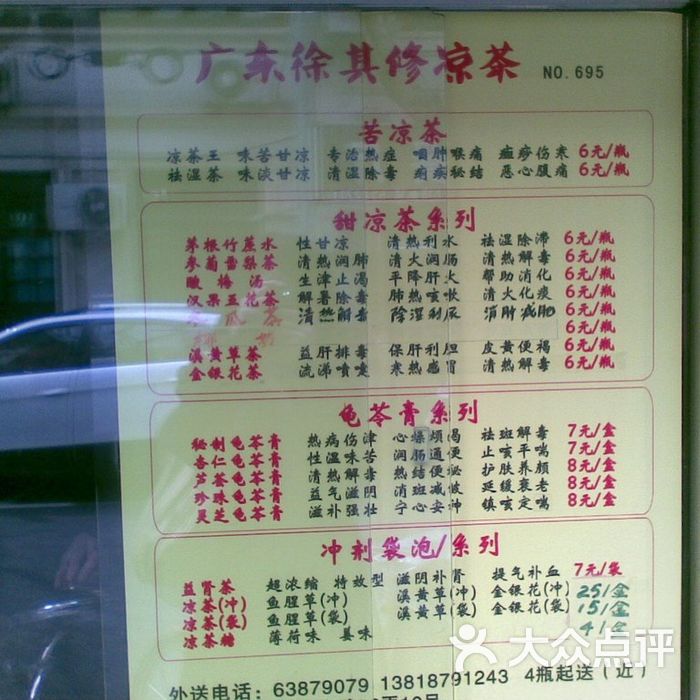 广东徐其修凉茶 NO.695
苦凉茶
凉茶王 味苦甘凉 专治热症 咽肿喉痛 瘟痧伤寒 6元/瓶
祛湿茶 味淡甘凉 清湿除毒 疴痢秘结 恶心腹痛 6元/瓶
甜凉茶系列
茅根竹蔗水 性甘凉 清热利水 祛湿除滞 6元/瓶
参菊雪梨茶 清热润肺 清火润肠 清热解毒 6元/瓶
酸梅汤 生津止渴 平降肝火 帮助消化 6元/瓶
汉果五花茶 解暑除毒 肺热咳嗽 清火化痰 6元/瓶
茶 清热解毒 除湿利尿 消肿减肥 6元/瓶
6元/瓶
溪黄草茶 益肝排毒 保肝利胆 皮黄便褐 6元/瓶
金银花茶 流涕喷嚏 寒热感冒 清热解毒 6元/瓶
龟苓膏系列
秘制龟苓膏 热病伤津 心燥烦渴 祛斑解毒 7元/盒
杏仁龟苓膏 性温味苦 润肠通便 止咳平喘 7元/盒
芦荟龟苓膏 清热解毒 热结便秘 护肤养颜 8元/盒
珍珠龟苓膏 益气滋阴 消斑减皱 延缓衰老 8元/盒
灵芝龟苓膏 滋补强壮 宁心安神 镇咳定喘 8元/盒
冲剂袋泡/系列
益肾茶 超浓缩 特效型 滋阴补肾 提气补血 7元/袋
凉茶(冲) 鱼腥草(冲) 溪黄草(冲) 金银花(冲) 25/盒
凉茶(袋) 鱼腥草(袋) 溪黄草(袋) 金银花(袋) 15/盒
凉茶糖 薄荷味 姜味 4/盒
外送电话：63879079 13818791243 4瓶起送（近）
大众点评